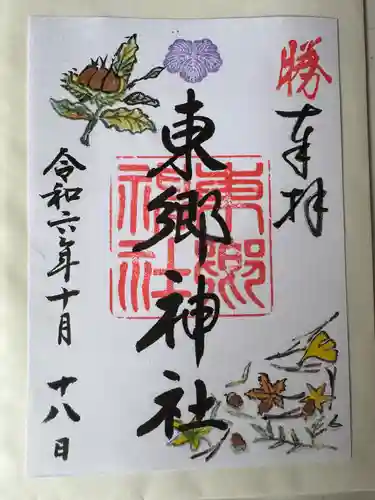 勝
奉拝
東郷神社
東郷
神社
令和六年十月十八日